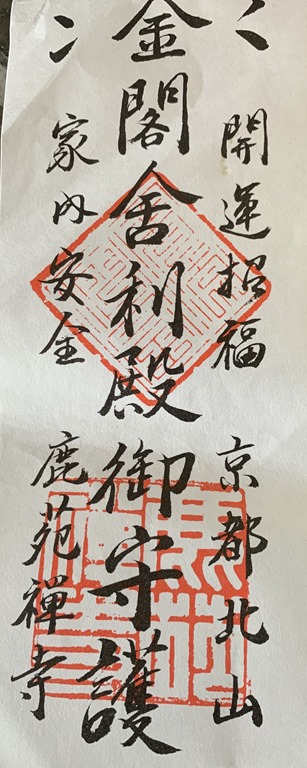 開運招福
京都北山
金閣舎利殿
御守護
家内安全
鹿苑禅寺